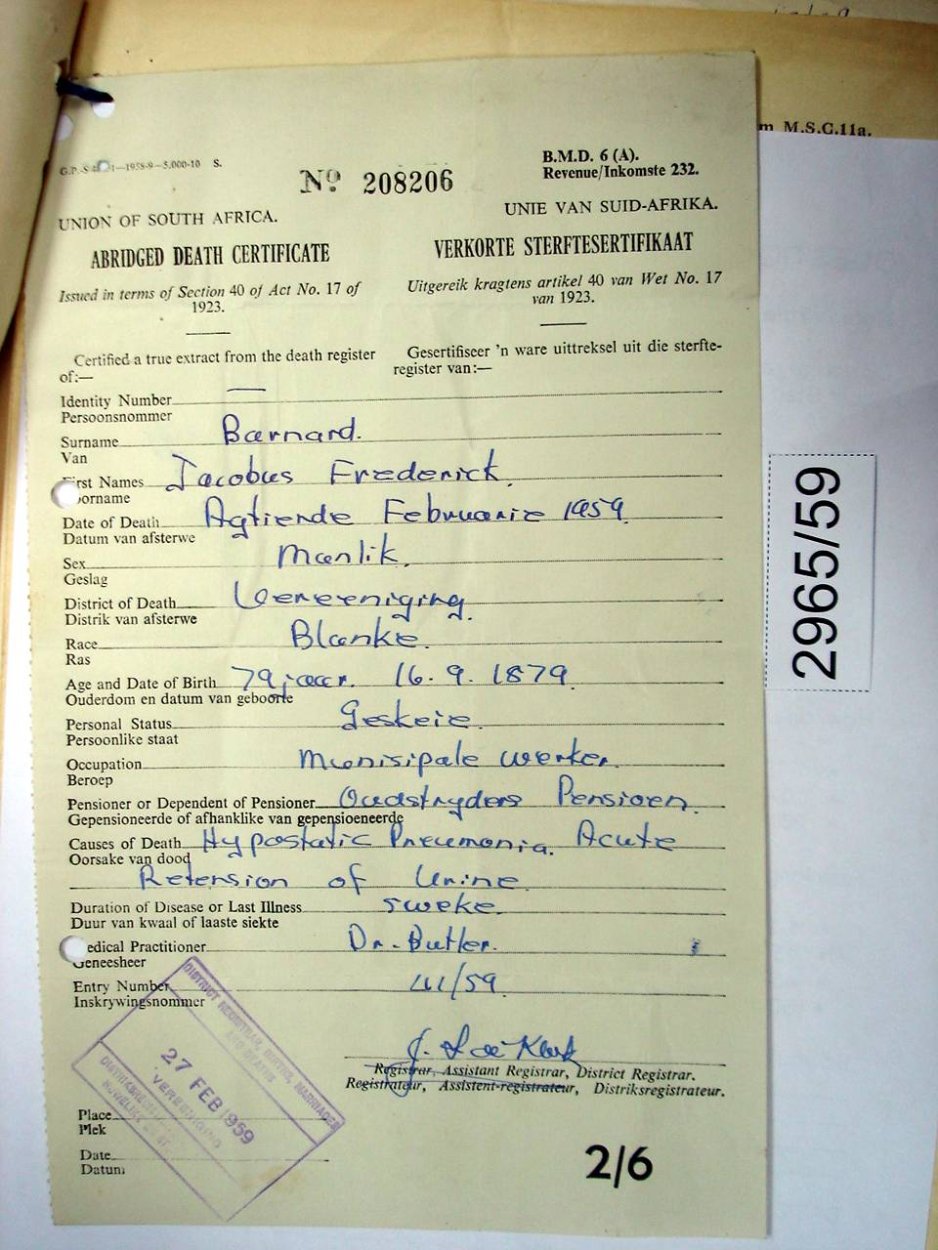 m M.S.C.11a.
1—1958-9—5,000-10 S.
Nº 208206
B.M.D. 6 (A).
Revenue/Inkomste 232.
UNION OF SOUTH AFRICA.
UNIE VAN SUID-AFRIKA.
ABRIDGED DEATH CERTIFICATE
VERKORTE STERFTESERTIFIKAAT
Issued in terms of Section 40 of Act No. 17 of
1923.
Uitgereik kragtens artikel 40 van Wet No. 17
van 1923.
Certified a true extract from the death register
of:—
Gesertifiseer 'n ware uittreksel uit die sterfte-
register van:—
Identity Number —
Persoonsnommer
Surname Barnard.
Van
First Names Jacobus Frederick.
Voorname
Date of Death Agtiende Februarie 1959
Datum van afsterwe
Sex Manlik.
Geslag
District of Death Vereeniging.
Distrik van afsterwe
Race Blanke.
Ras
Age and Date of Birth 79 jaar. 16.9.1879
Ouderdom en datum van geboorte
Personal Status Geskeie.
Persoonlike staat
Occupation Munisipale werker.
Beroep
Pensioner or Dependent of Pensioner Oudstryders Pensioen.
Gepensioneerde of afhanklike van gepensioeneerde
Causes of Death Hypostatic Pneumonia. Acute
Oorsake van dood
Retension of Urine
Duration of Disease or Last Illness 5 weke.
Duur van kwaal of laaste siekte
Medical Practitioner Dr. Butler.
Geneesheer
Entry Number 111/59
Inskrywingsnommer
Registrar, Assistant Registrar, District Registrar.
Registrateur, Assistent-registrateur, Distriksregistrateur.
DISTRICT REGISTRAR, BIRTHS, MARRIAGES
AND DEATHS
27 FEB 1959
VEREENIGING
Place
Plek
Date
Datum
2/6
2965/59